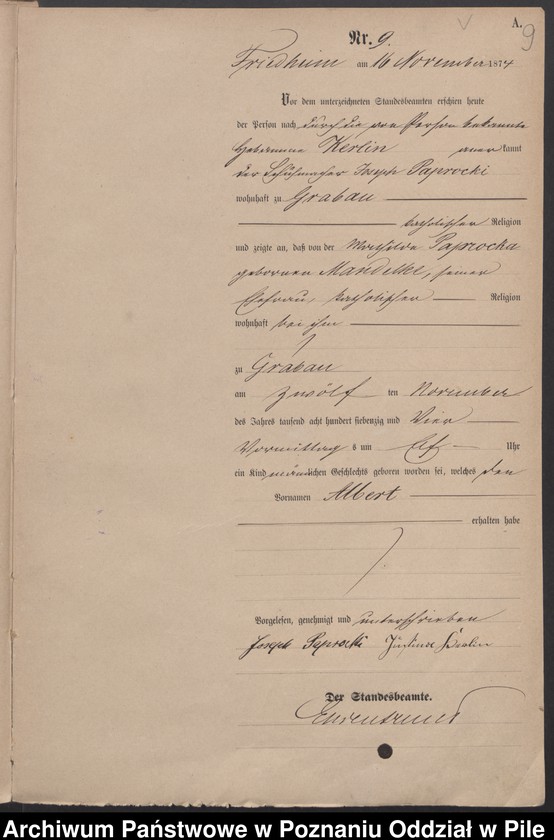 A.
9
Nr. 9.
Friedheim am 16 November 1874
Vor dem unterzeichneten Standesbeamten erschien heute
der Person nach durch die von Person bekannte
Hebamme Kerlin anerkannt
der Schuhmacher Joseph Paprocki
wohnhaft zu Grabau
katholischer Religion
und zeigte an, daß von der Mathilde Paprocka
gebornen Mandelke, seiner
Ehefrau, katholischer Religion
wohnhaft bei ihm
zu Grabau
am zwölf ten November
des Jahres tausend acht hundert siebenzig und Vier
Vormittag s um Elf Uhr
ein Kind männlichen Geschlechts geboren worden sei, welches den
Vornamen Albert
erhalten habe
Vorgelesen, genehmigt und unterschrieben
Joseph Paprocki Justine Kerlin
Der Standesbeamte.
Archiwum Państwowe w Poznaniu Oddział w Pile